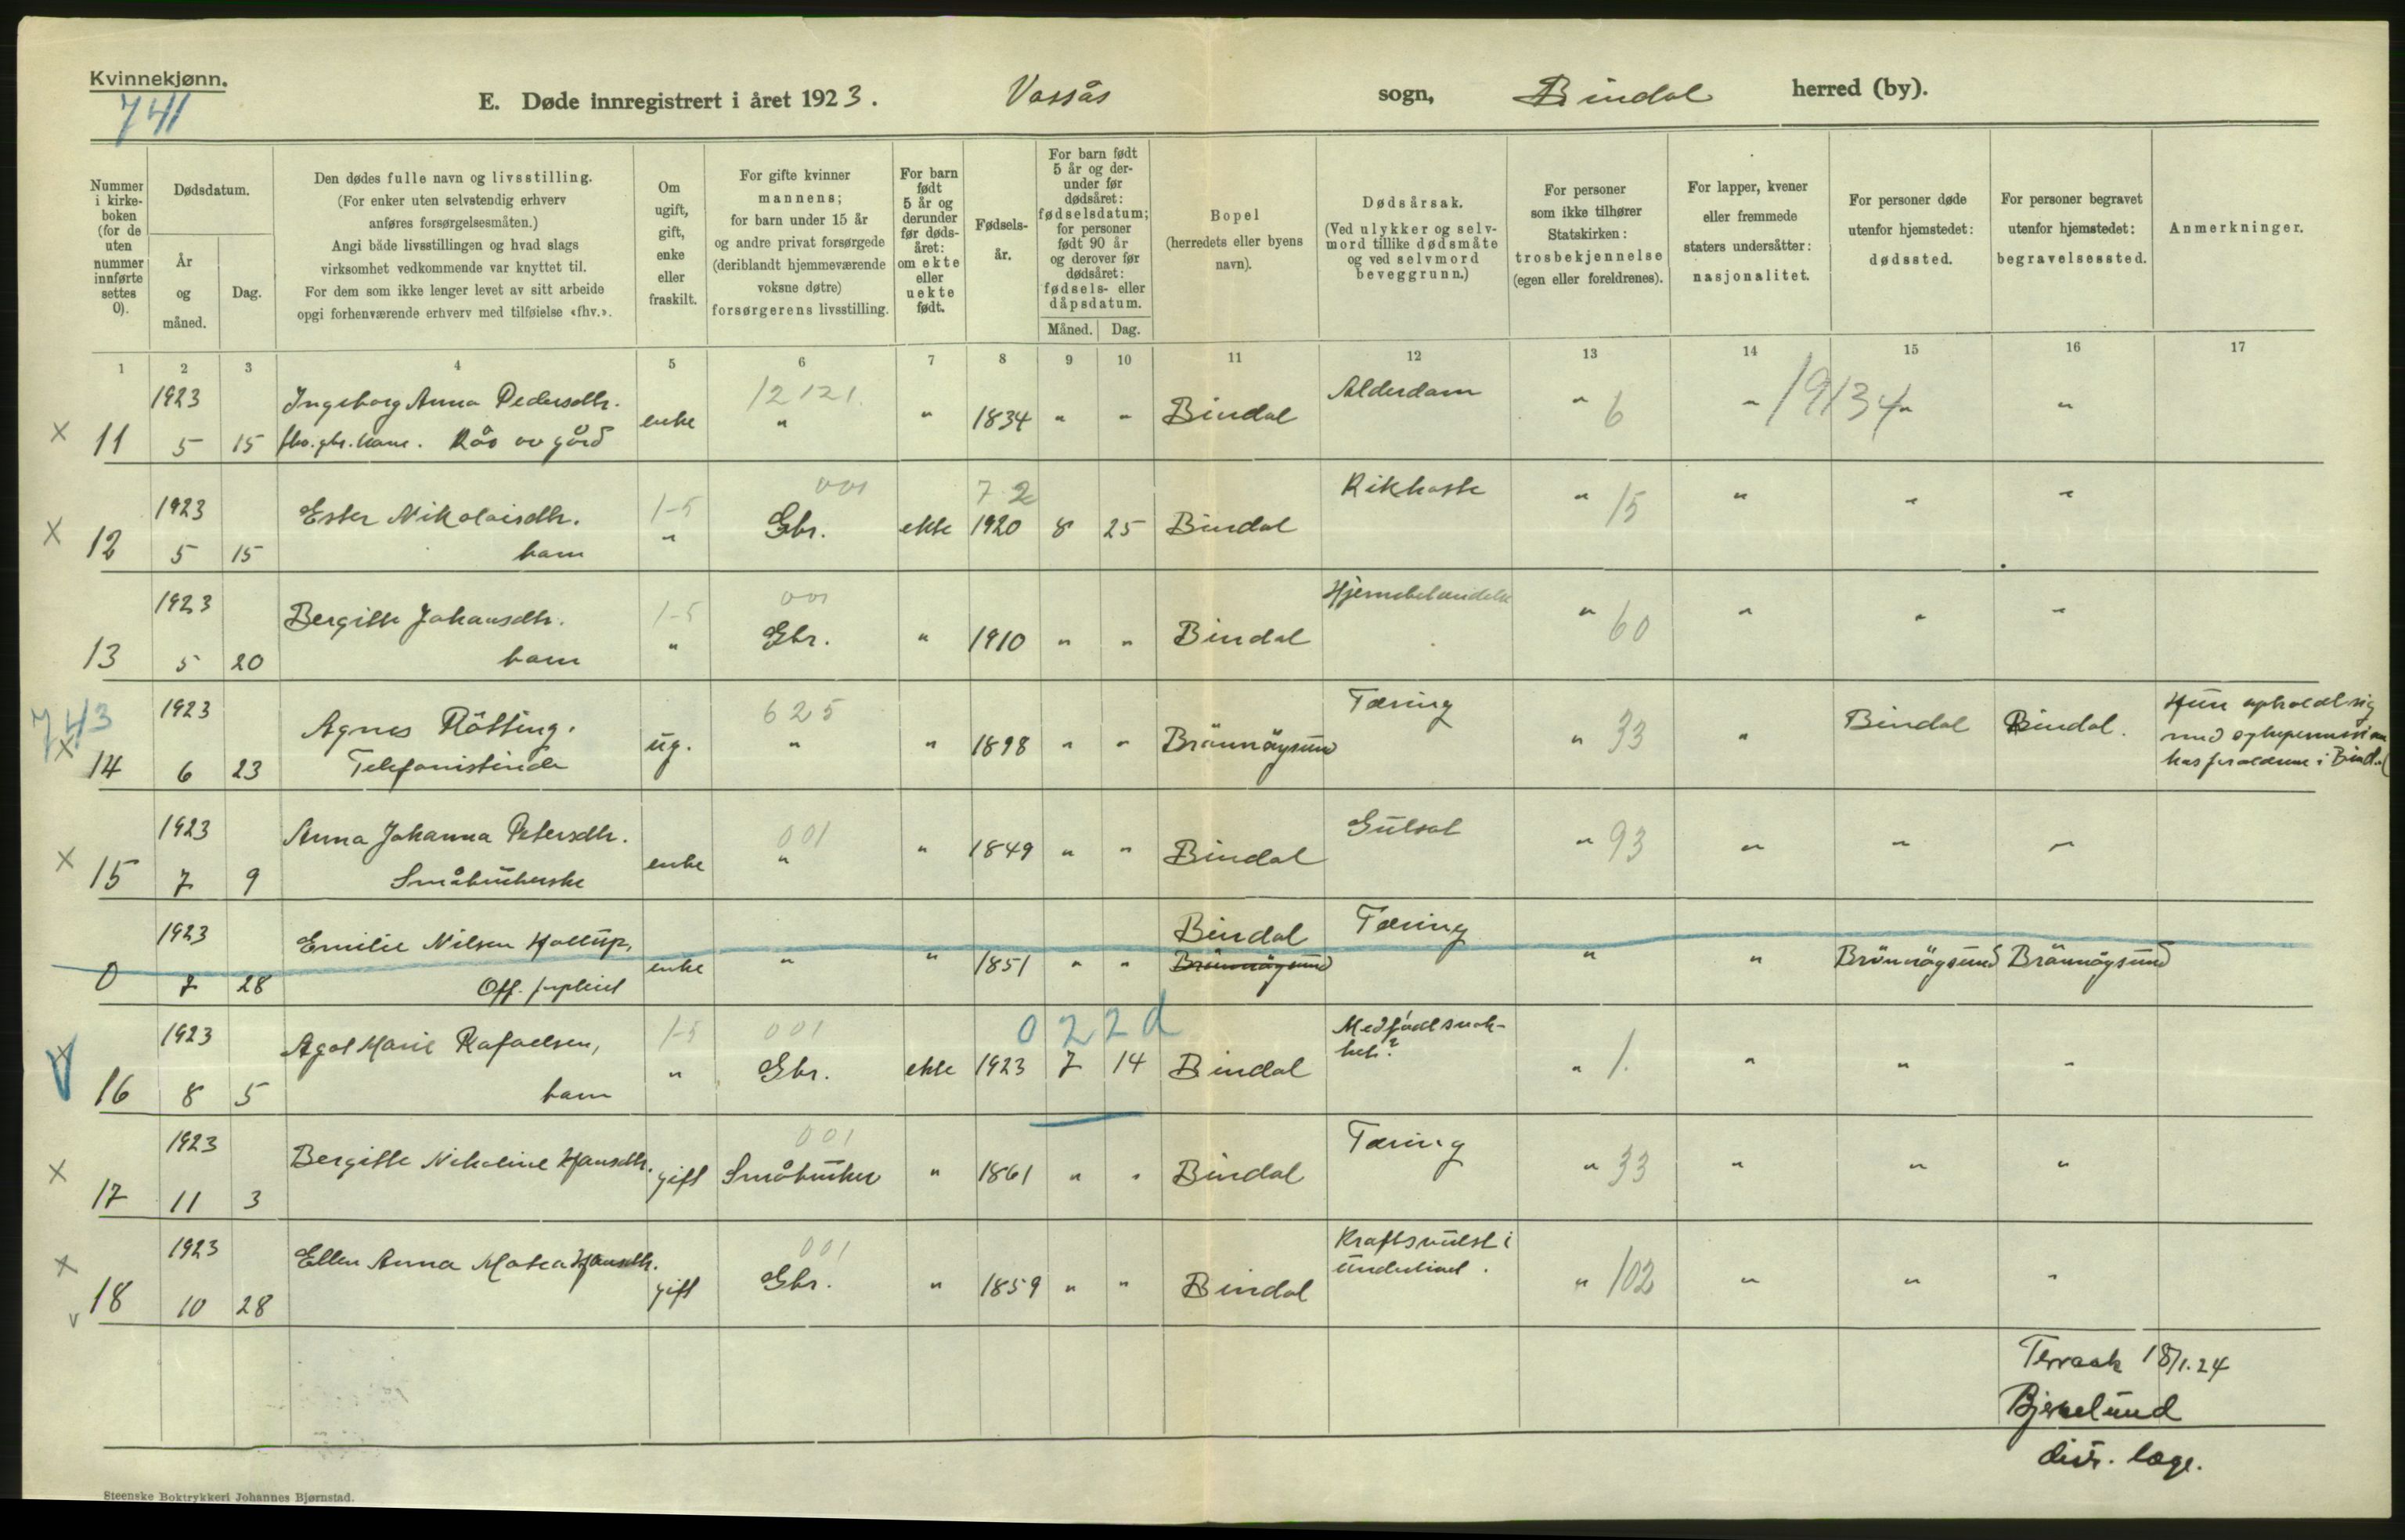 Kvinnekjønn.
741
E. Døde innregistrert i året 1923. Vassås sogn, Bindal herred (by).
Nummer i kirke-boken (for de uten nummer innførte settes 0).
Dødsdatum.
År og måned.
Dag.
Den dødes fulle navn og livsstilling.
(For enker uten selvstendig erhverv
anføres forsørgelsesmåten.)
Angi både livsstillingen og hvad slags
virksomhet vedkommende var knyttet til.
For dem som ikke lenger levet av sitt arbeide
opgi forhenværende erhverv med tilføielse «fhv.».
Om ugift, gift, enke eller fraskilt.
For gifte kvinner
mannens;
for barn under 15 år
og andre privat forsørgede
(deriblandt hjemmeværende
voksne døtre)
forsørgerens livsstilling.
For barn født 5 år og derunder før døds-året: om ekte eller uekte født.
Fødsels-år.
For barn født 5 år og der-under før dødsåret: fødselsdatum; for personer født 90 år og derover før dødsåret: fødsels- eller dåpsdatum.
Måned. Dag.
Bopel
(herredets eller byens
navn).
Dødsårsak.
(Ved ulykker og selv-
mord tillike dødsmåte
og ved selvmord
beveggrunn.)
For personer
som ikke tilhører
Statskirken:
trosbekjennelse
(egen eller foreldrenes).
For lapper, kvener
eller fremmede
staters undersåtter:
nasjonalitet.
For personer døde
utenfor hjemstedet:
dødssted.
For personer begravet
utenfor hjemstedet:
begravelsessted.
Anmerkninger.
1 2 3 4 5 6 7 8 9 10 11 12 13 14 15 16 17
1923 Ingeborg Anna Pedersdtr. 12121. Alderdom 6 19134
x 11 5 15 fhv. gbr. kone. Kår av gård enke " " 1834 " " Bindal " " " "
1923 Ester Nikolaisdtr. 1-5 001 72 Kikhoste 15
x 12 5 15 barn " Gbr. ekte 1920 8 25 Bindal " " " "
1923 Bergitte Johansdtr. 1-5 001 Hjernebetændelse 60
13 5 20 barn " Gbr. " 1910 " " Bindal " " " "
743 1923 Agnes Røtting. 625 Tæring 33 Bindal Bindal. Hun opholdt sig
x 14 6 23 Telefonistinde ug. " " 1898 " " Brønnøysund " " hos forældrene i Bindal
1923 Anna Johanna Petersdtr. 001 Gulsot 93
x 15 7 9 Småbrukerske enke " " 1849 " " Bindal " " " "
1923 Emilie Nilsen Bindal Tæring
0 7 28 Off. enke " " 1851 " " Brønnøysund " " Brønnøysund Brønnøysund
1923 Agot Marie Rafaelsen, 1-5 001 022d Medfødt svak-
het?
V x 16 8 5 barn " Gbr. ekte 1923 7 14 Bindal " 1. " " "
1923 Bergitte Nikoline Hansdtr. 001 Tæring 33
x 17 11 3 gift Småbruker " 1861 " " Bindal " " " "
1923 Ellen Anna Matea Hansdtr. 001 Kræftsvulst i
underlivet.
x v 18 10 28 gift Gbr. " 1859 " " Bindal " 102 " " "
Terraak 18/1.24
Bjerkelund
distr. læge.
Steenske Boktrykkeri Johannes Bjørnstad.